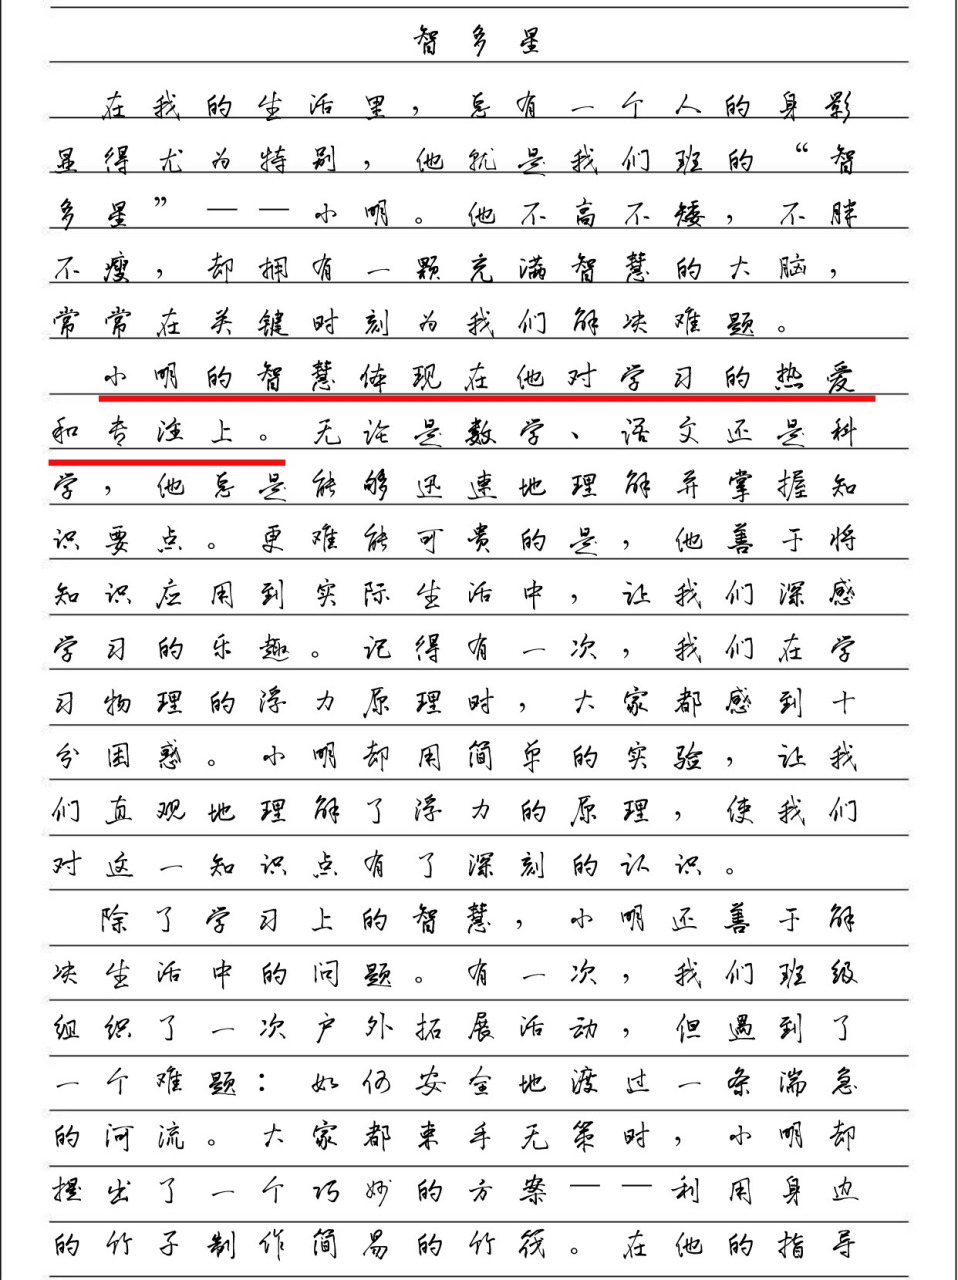 智多星
在我的生活里，总有一个人的身影
显得尤为特别，他就是我们班的“智
多星”——小明。他不高不矮，不胖
不瘦，却拥有一颗充满智慧的大脑，
常常在关键时刻为我们解决难题。
小明的智慧体现在他对学习的热爱
和专注上。无论是数学、语文还是科
学，他总是能够迅速地理解并掌握知
识要点。更难能可贵的是，他善于将
知识应用到实际生活中，让我们深感
学习的乐趣。记得有一次，我们在学
习物理的浮力原理时，大家都感到十
分困惑。小明却用简单的实验，让我
们直观地理解了浮力的原理，使我们
对这一知识点有了深刻的认识。
除了学习上的智慧，小明还善于解
决生活中的问题。有一次，我们班级
组织了一次户外拓展活动，但遇到了
一个难题：如何安全地渡过一条湍急
的河流。大家都束手无策时，小明却
提出了一个巧妙的方案——利用身边
的竹子制作简易的竹筏。在他的指导